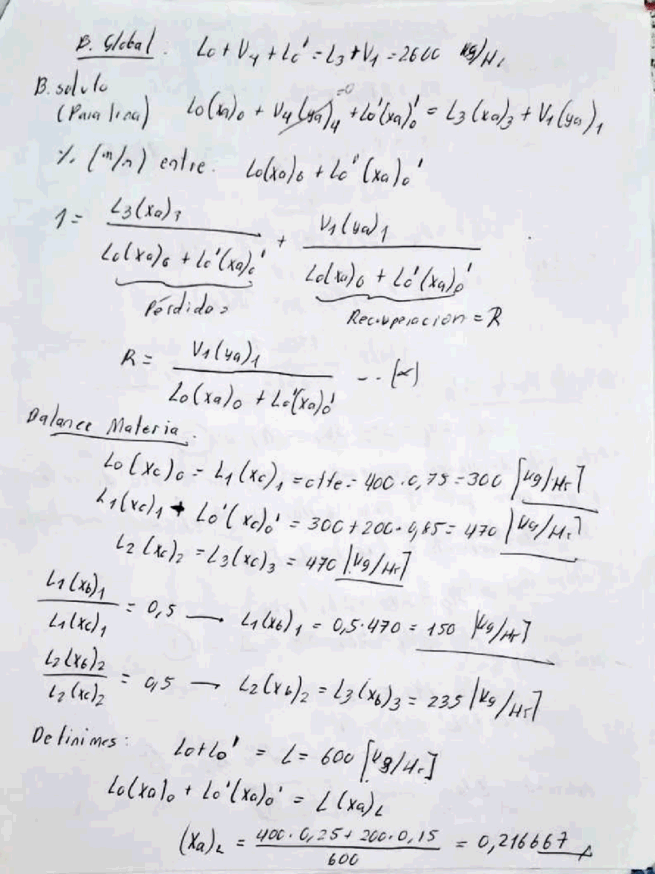 B. Global. L₀ + V₄ + L₀' = L₃ + V₁ = 2600 kg/Hr
B. soluto
(Para lina) L₀(xa)₀ + V₄(ya)₄ + L₀'(xa)₀' = L₃(xa)₃ + V₁(ya)₁
=0
% (m/m) entre: L₀(xa)₀ + L₀'(xa)₀'
1 = L₃(xa)₃ / L₀(xa)₀ + L₀'(xa)₀' + V₁(ya)₁ / L₀(xa)₀ + L₀'(xa)₀'
Pérdidas Recuperación = R
R = V₁(ya)₁ / L₀(xa)₀ + L₀'(xa)₀' ... (α)
Balance Materia:
L₀(xc)₀ = L₁(xc)₁ = ctte = 400 · 0,75 = 300 [kg/Hr]
L₁(xc)₁ + L₀'(xc)₀' = 300 + 200 · 0,85 = 470 [kg/Hr]
L₂(xc)₂ = L₃(xc)₃ = 470 [kg/Hr]
L₁(xb)₁ / L₁(xc)₁ = 0,5 → L₁(xb)₁ = 0,5 · 470 = 150 [kg/Hr]
L₂(xb)₂ / L₂(xc)₂ = 0,5 → L₂(xb)₂ = L₃(xb)₃ = 235 [kg/Hr]
Definimos: L₀ + L₀' = L = 600 [kg/Hr]
L₀(xa)₀ + L₀'(xa)₀' = L(xa)L
(xa)L = 400 · 0,25 + 200 · 0,15 / 600 = 0,216667